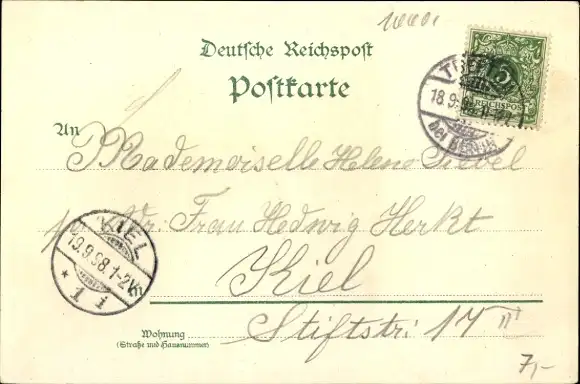 Deutsche Reichspost
Postkarte
5
REICHSPOST
18.9.98
bei BERLIN
An
Mademoiselle Helene
Frau Hedwig Herkt
KIEL
19.9.98.1-2N
* 1 i
Kiel
Wohnung
(Straße und Hausnummer)
Stiftstr: 17 III
7,-